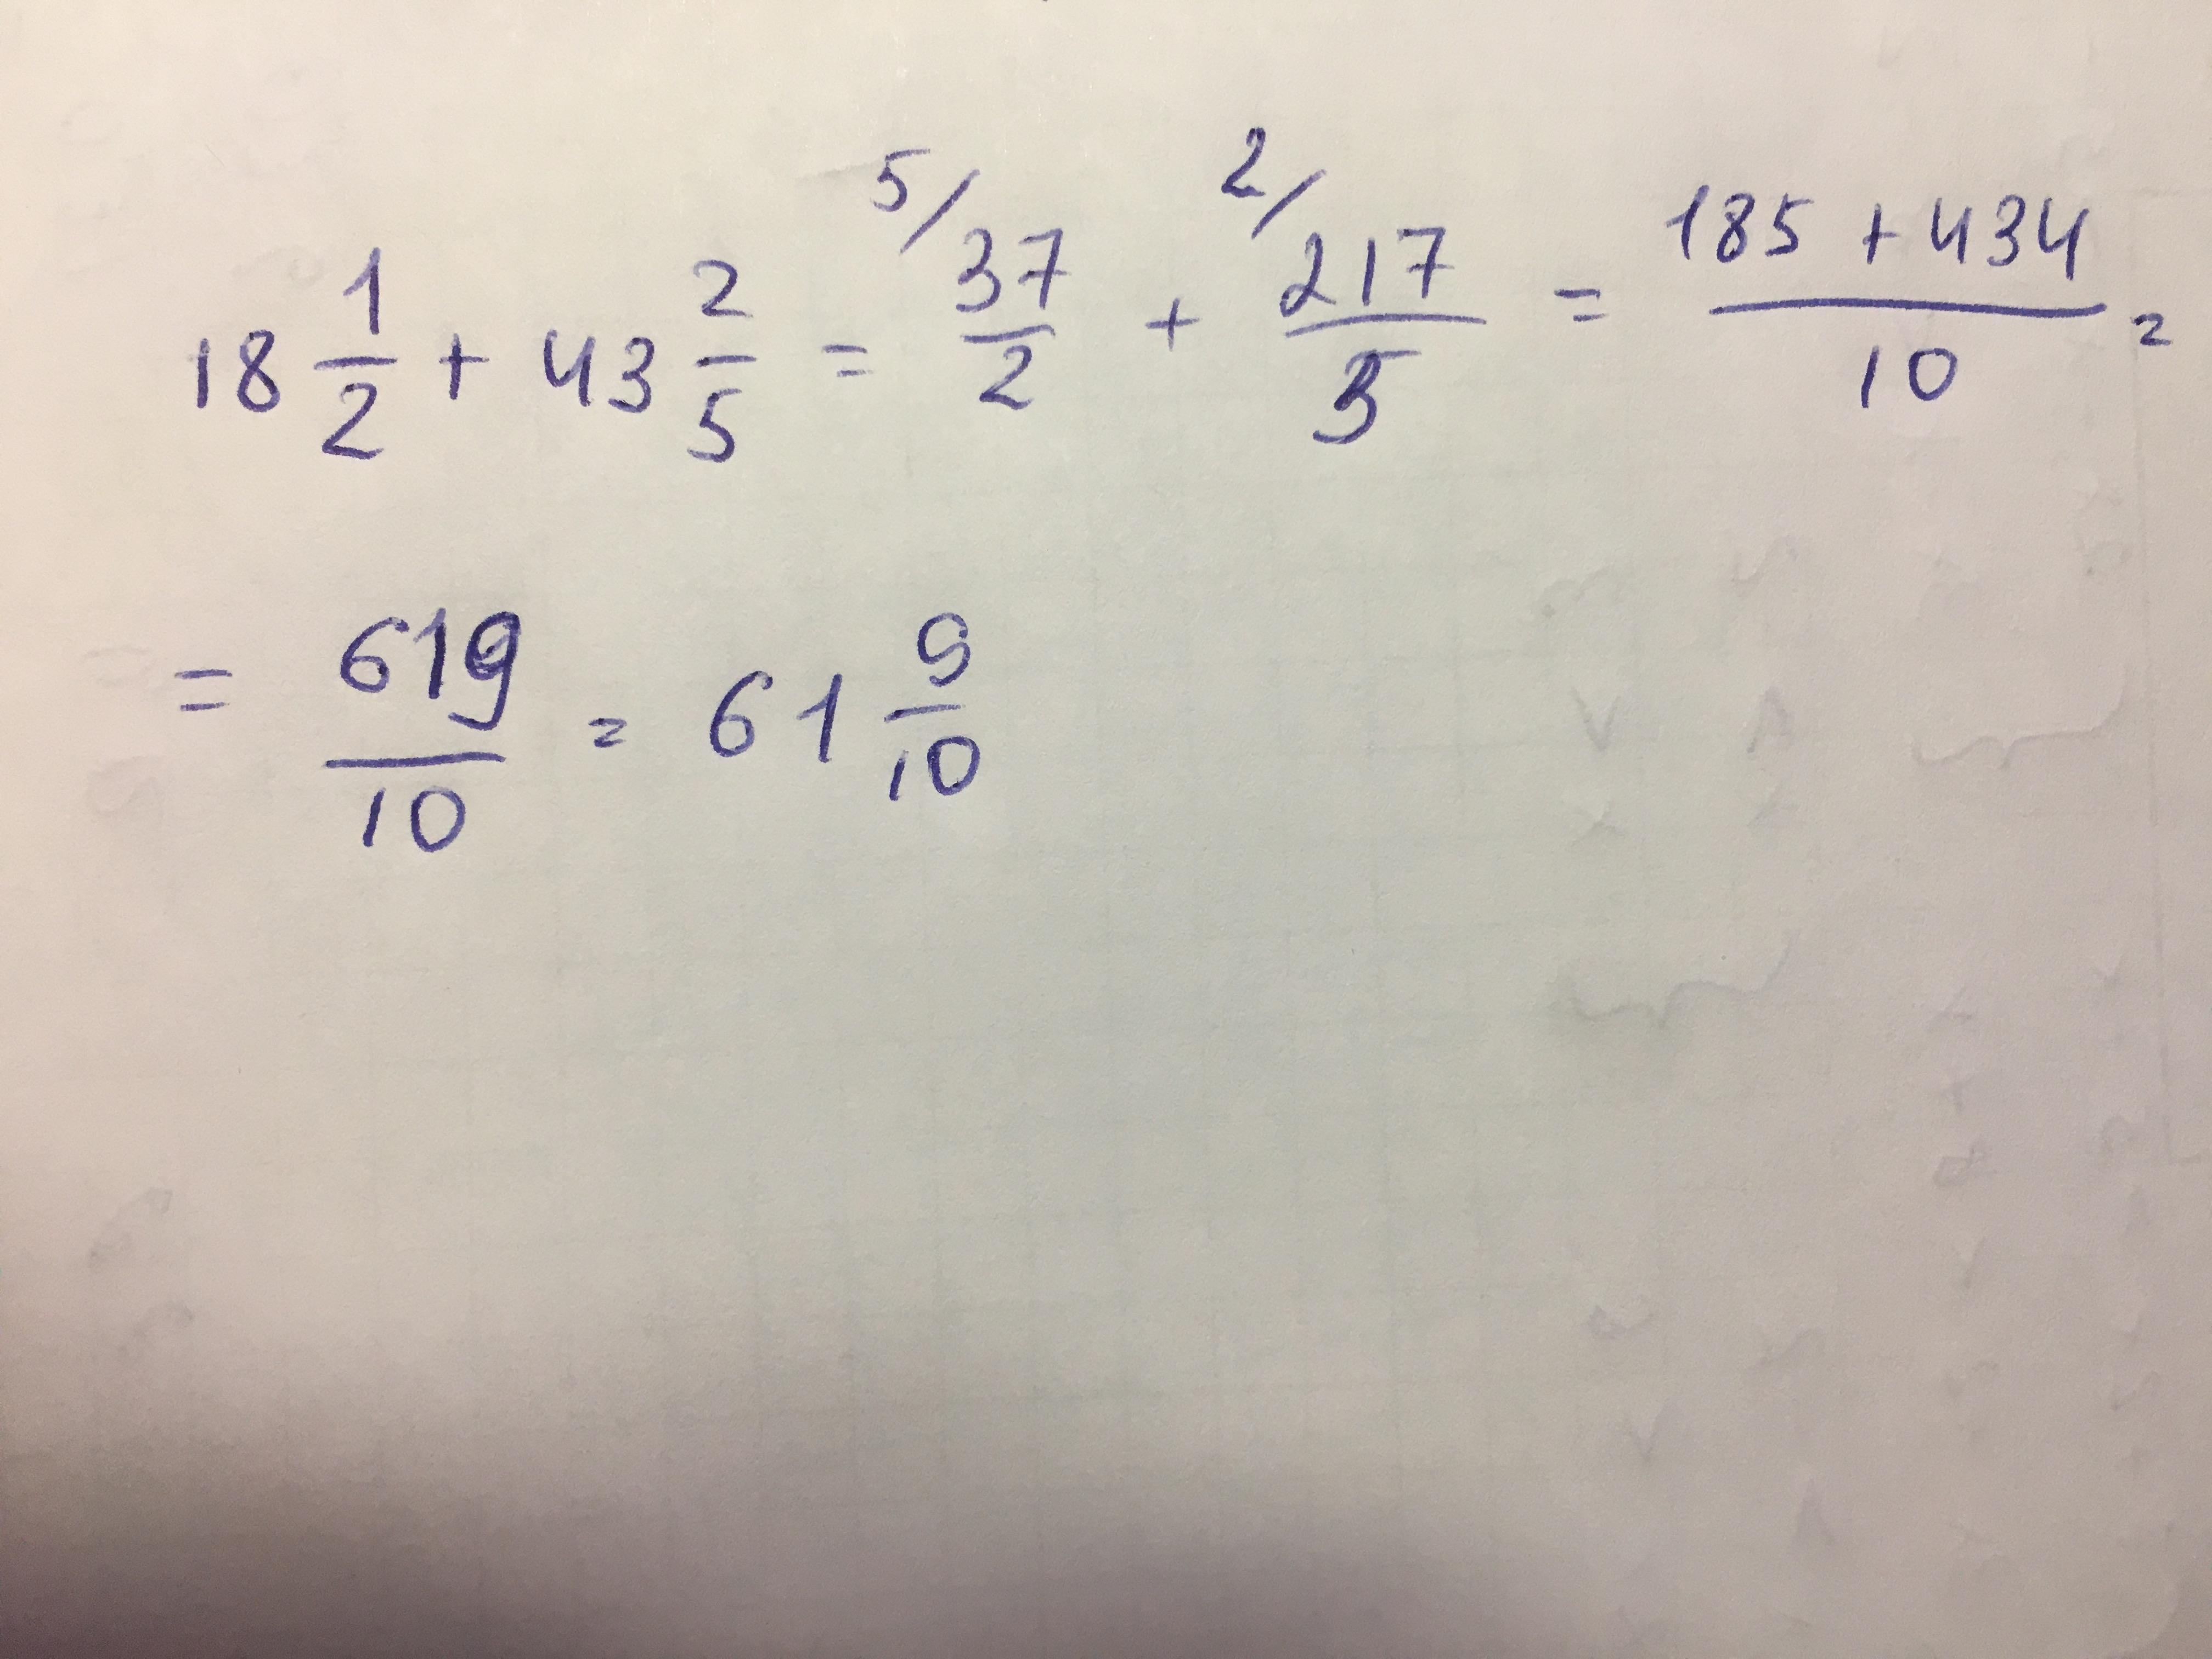 18 1/2 + 43 2/5 = 5/ 37/2 + 2/ 217/5 = (185 + 434)/10 =
= 619/10 = 61 9/10